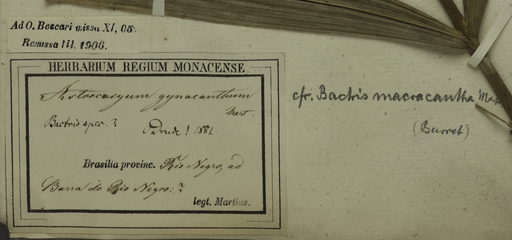 Ad O. Beccari missa XI, 05.
Remissa III. 1906.
HERBARIUM REGIUM MONACENSE.
Astrocaryum gynacanthum
Mart.
Bactris spec.?
Drude! 1881.
Brasilia provinc. Rio Negro, ad
Barra do Rio Negro:?
legt. Martius.
cfr. Bactris macracantha Mart
(Burret)